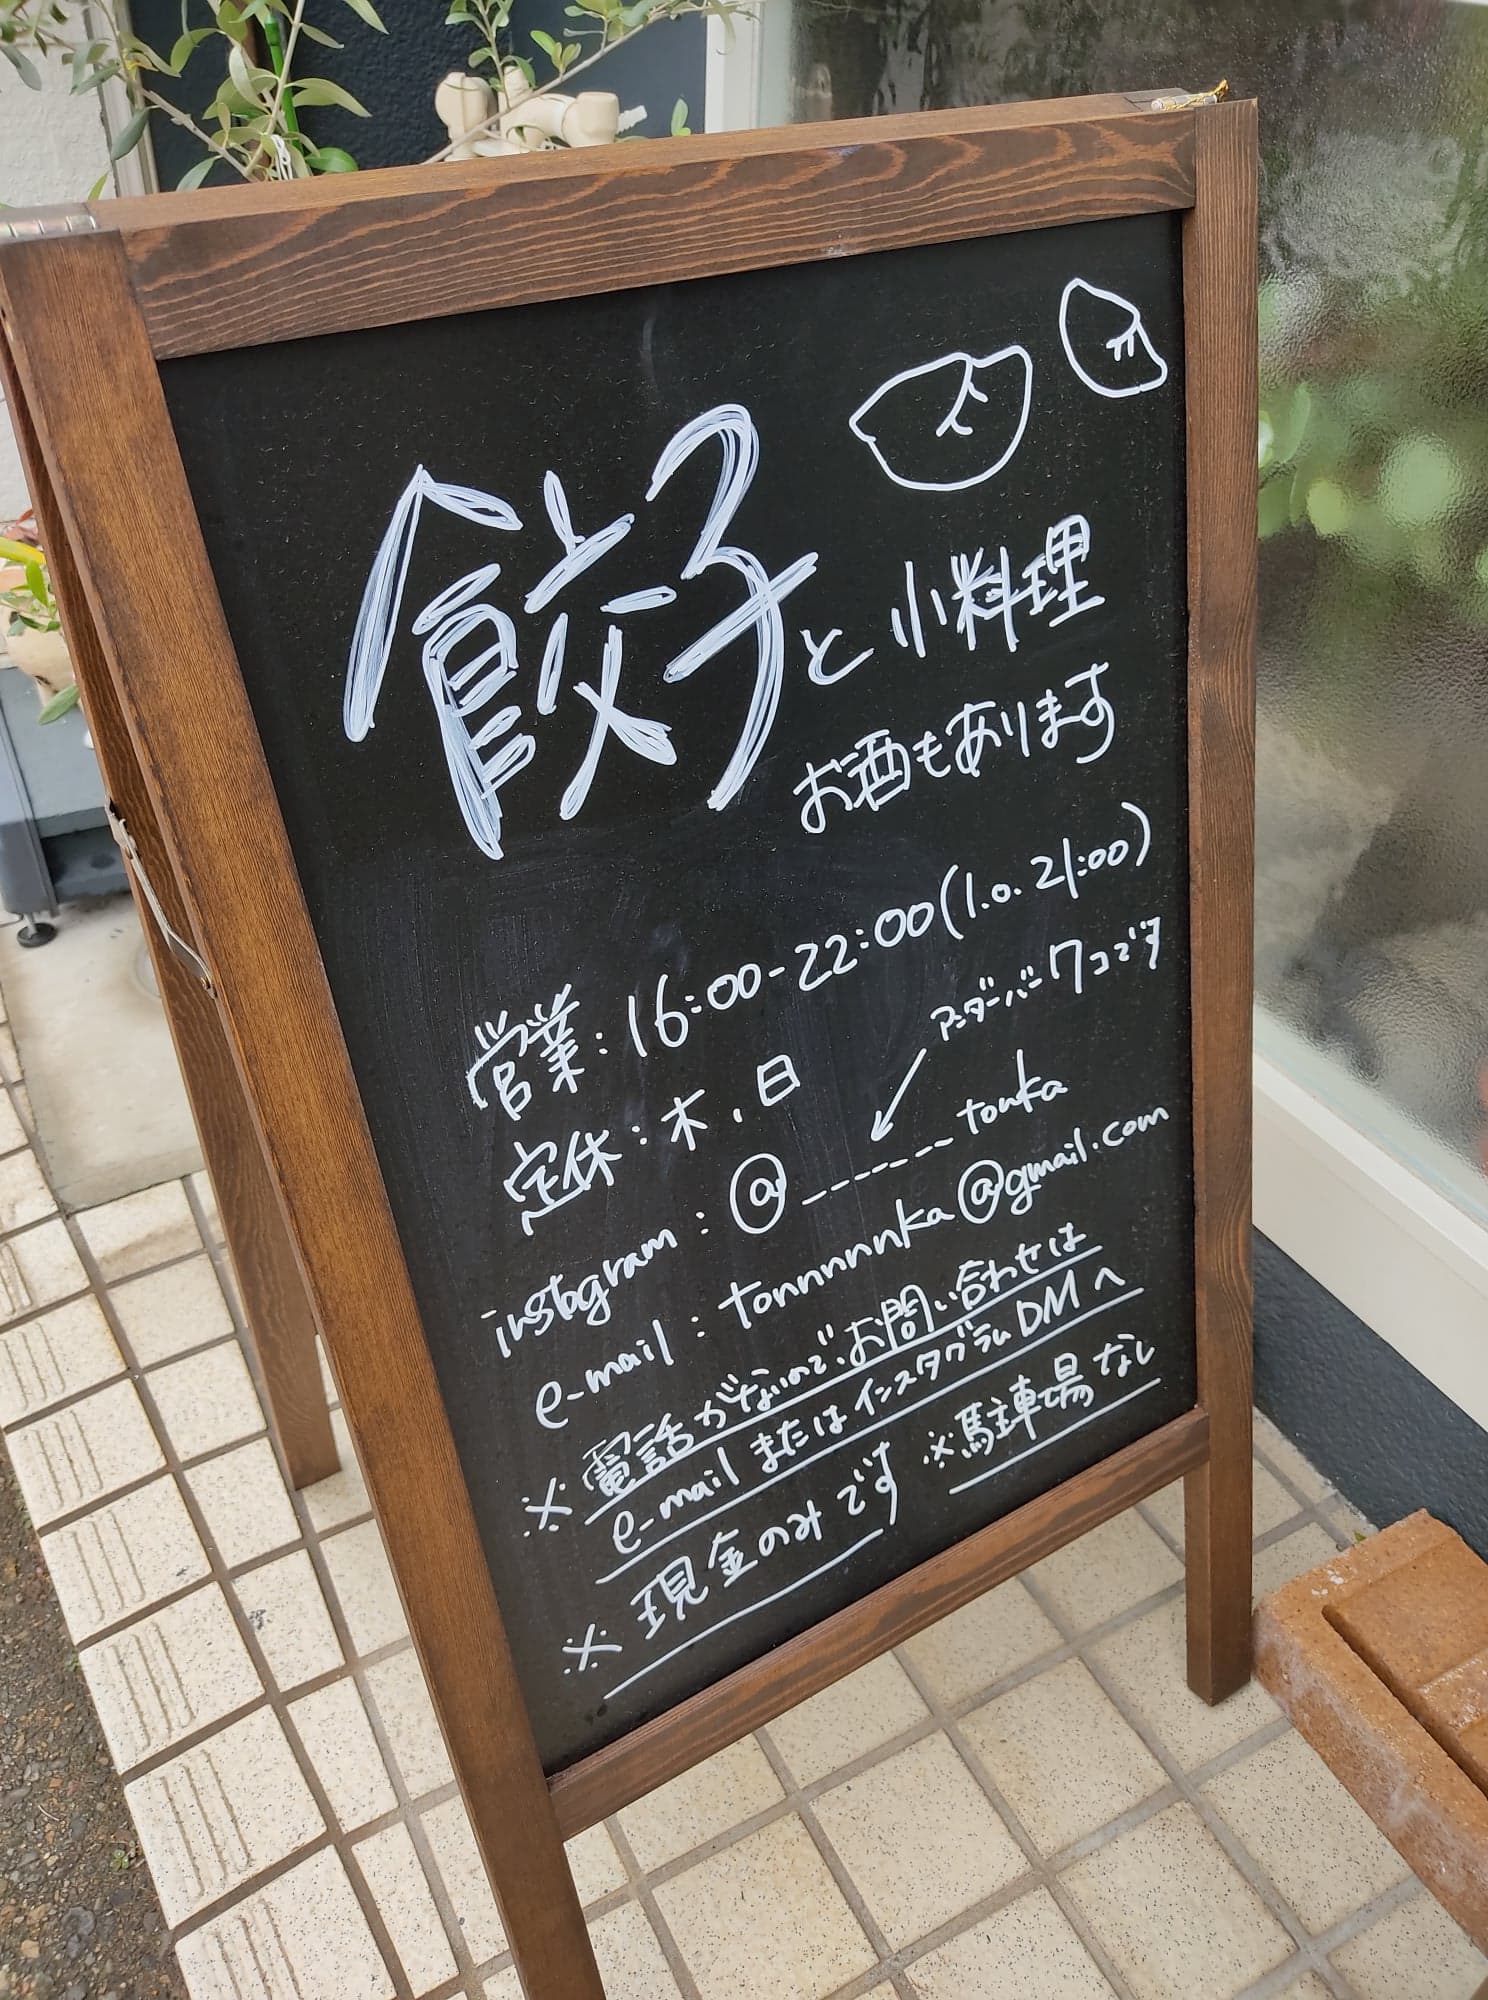 餃子と小料理
お酒もあります
営業：16:00-22:00(l.o. 21:00)
アンダーバー7コです
定休：木、日
instagram：@_______tonka
e-mail：tonnnnnka@gmail.com
※電話がないので、お問い合わせは
e-mailまたはインスタグラムDMへ
※現金のみです ※駐車場なし